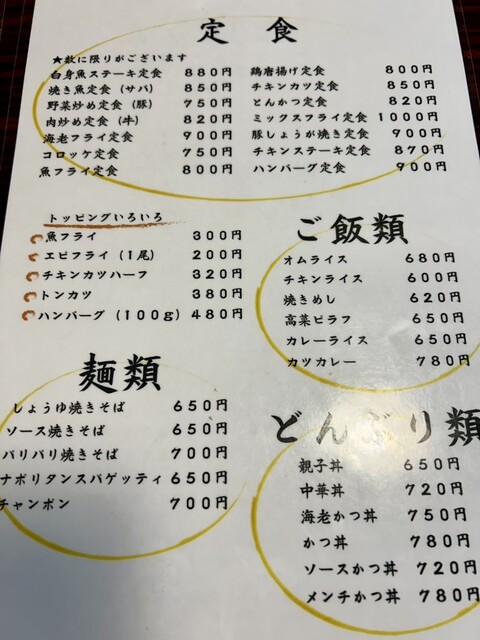 定食
★数に限りがございます
白身魚ステーキ定食 880円
焼き魚定食（サバ） 850円
野菜炒め定食（豚） 750円
肉炒め定食（牛） 820円
海老フライ定食 900円
コロッケ定食 750円
魚フライ定食 800円
鶏唐揚げ定食 800円
チキンカツ定食 850円
とんかつ定食 820円
ミックスフライ定食 1000円
豚しょうが焼き定食 900円
チキンステーキ定食 870円
ハンバーグ定食 900円
トッピングいろいろ
魚フライ 300円
エビフライ（1尾） 200円
チキンカツハーフ 320円
トンカツ 380円
ハンバーグ（100g） 480円
ご飯類
オムライス 680円
チキンライス 600円
焼きめし 620円
高菜ピラフ 650円
カレーライス 650円
カツカレー 780円
麺類
しょうゆ焼きそば 650円
ソース焼きそば 650円
パリパリ焼きそば 700円
ナポリタンスパゲッティ 650円
チャンポン 700円
どんぶり類
親子丼 650円
中華丼 720円
海老かつ丼 750円
かつ丼 780円
ソースかつ丼 720円
メンチかつ丼 780円